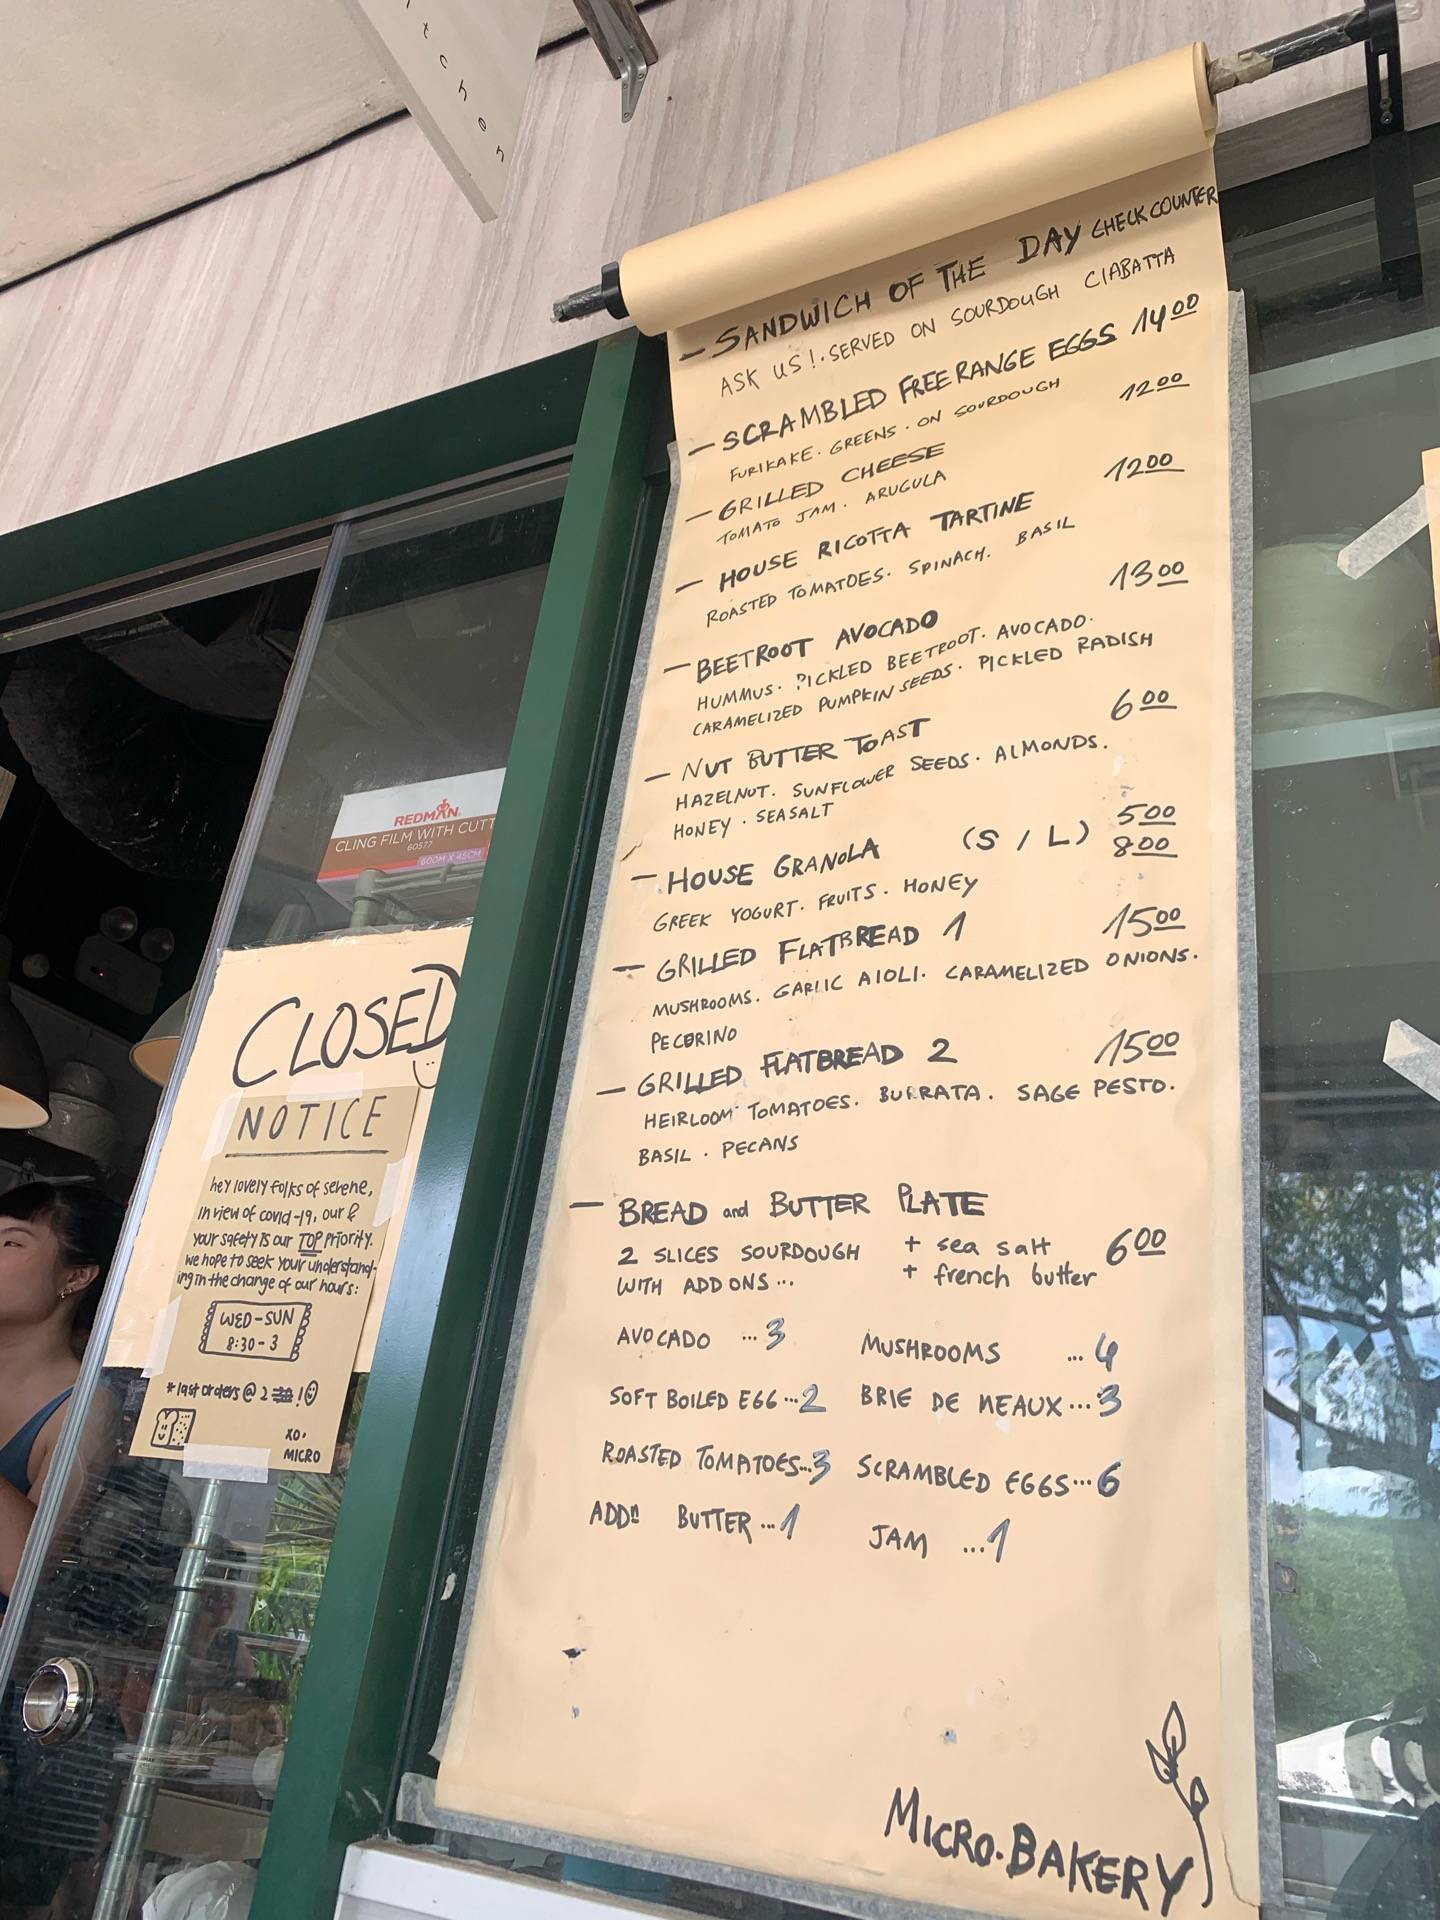 itchen
SANDWICH OF THE DAY CHECK COUNTER
ASK US!. SERVED ON SOURDOUGH CIABATTA
SCRAMBLED FREE RANGE EGGS 14 00
FURIKAKE. GREENS. ON SOURDOUGH
GRILLED CHEESE 12 00
TOMATO JAM. ARUGULA
HOUSE RICOTTA TARTINE 12 00
ROASTED TOMATOES. SPINACH. BASIL
BEETROOT AVOCADO 13 00
HUMMUS. PICKLED BEETROOT. AVOCADO.
CARAMELIZED PUMPKIN SEEDS. PICKLED RADISH
NUT BUTTER TOAST 6 00
HAZELNUT. SUNFLOWER SEEDS. ALMONDS.
HONEY. SEASALT
HOUSE GRANOLA (S / L) 5 00
8 00
GREEK YOGURT. FRUITS. HONEY
GRILLED FLATBREAD 1 15 00
MUSHROOMS. GARLIC AIOLI. CARAMELIZED ONIONS.
PECORINO
GRILLED FLATBREAD 2 15 00
HEIRLOOM TOMATOES. BURRATA. SAGE PESTO.
BASIL. PECANS
BREAD and BUTTER PLATE
2 SLICES SOURDOUGH + sea salt 6 00
WITH ADD ONS... + french butter
AVOCADO ...3 MUSHROOMS ...4
SOFT BOILED EGG...2 BRIE DE MEAUX...3
ROASTED TOMATOES...3 SCRAMBLED EGGS...6
ADDN BUTTER...1 JAM ...1
MICRO.BAKERY
REDMAN
CLING FILM WITH CUTT
60577
600M X 45CM
CLOSED
NOTICE
hey lovely folks of serene,
in view of covid-19, our &
your safety is our TOP priority.
we hope to seek your understand-
ing in the change of our hours:
WED-SUN
8:30-3
*last orders @ 2 !
XO.
MICRO